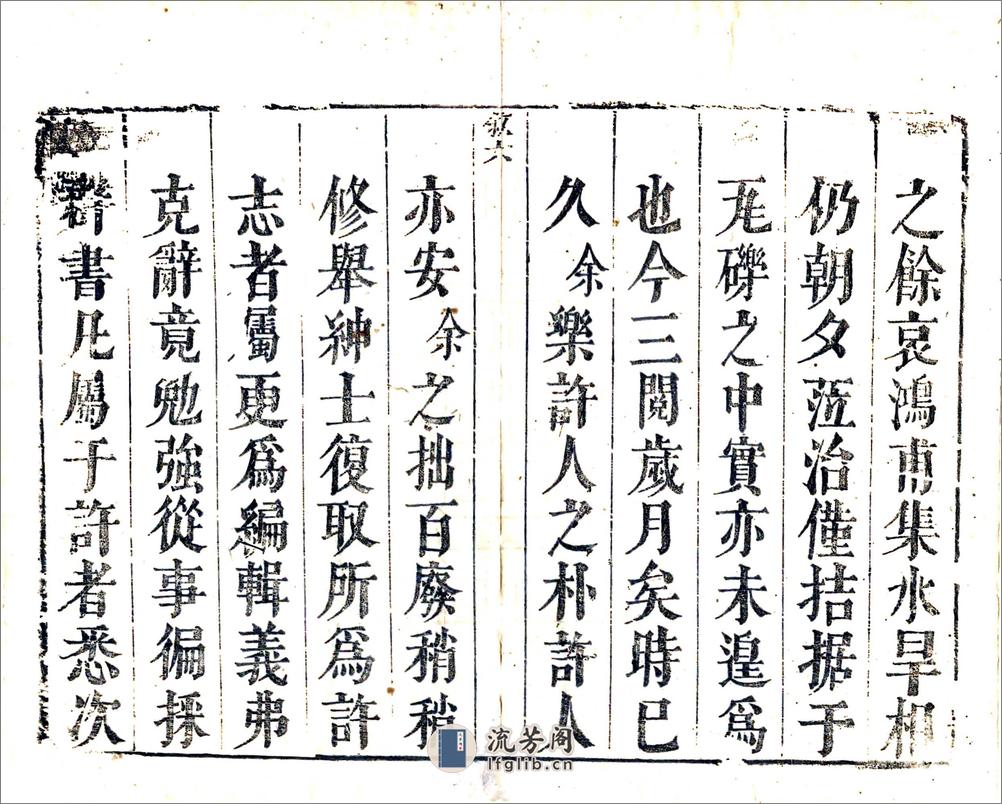 之餘哀鴻甫集水旱相
仍朝夕蒞治僅拮据于
兎礫之中實亦未遑爲
也今三閱歲月矣時巳
久余樂許人之朴許人
敘六
亦安余之拙百廢稍稍
修舉紳士復取所爲許
志者屬更爲編輯義弗
克辭竟勉強從事徧採
書凡屬于許者悉次
流芳阁
lfglib.cn